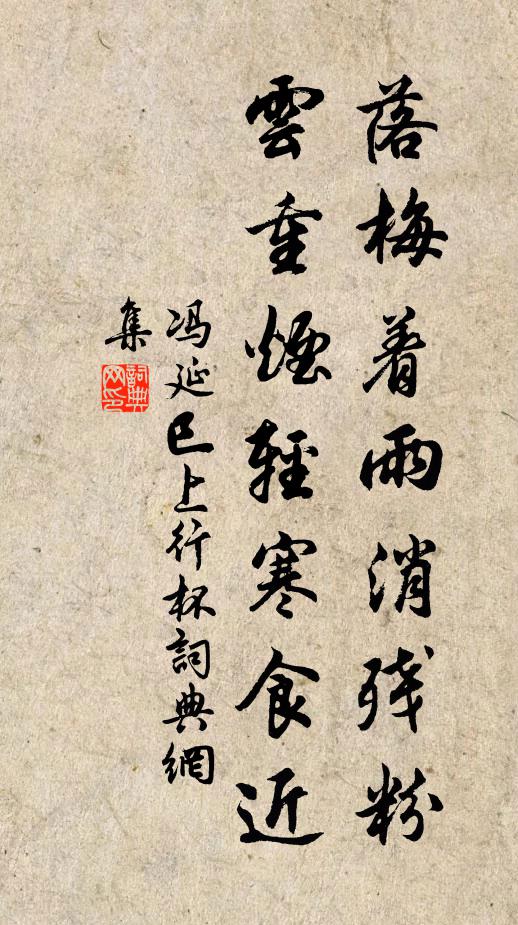 落梅着雨消残粉
雲重煙輕寒食近
冯延巳上行杯詞典網
集
詞典網印